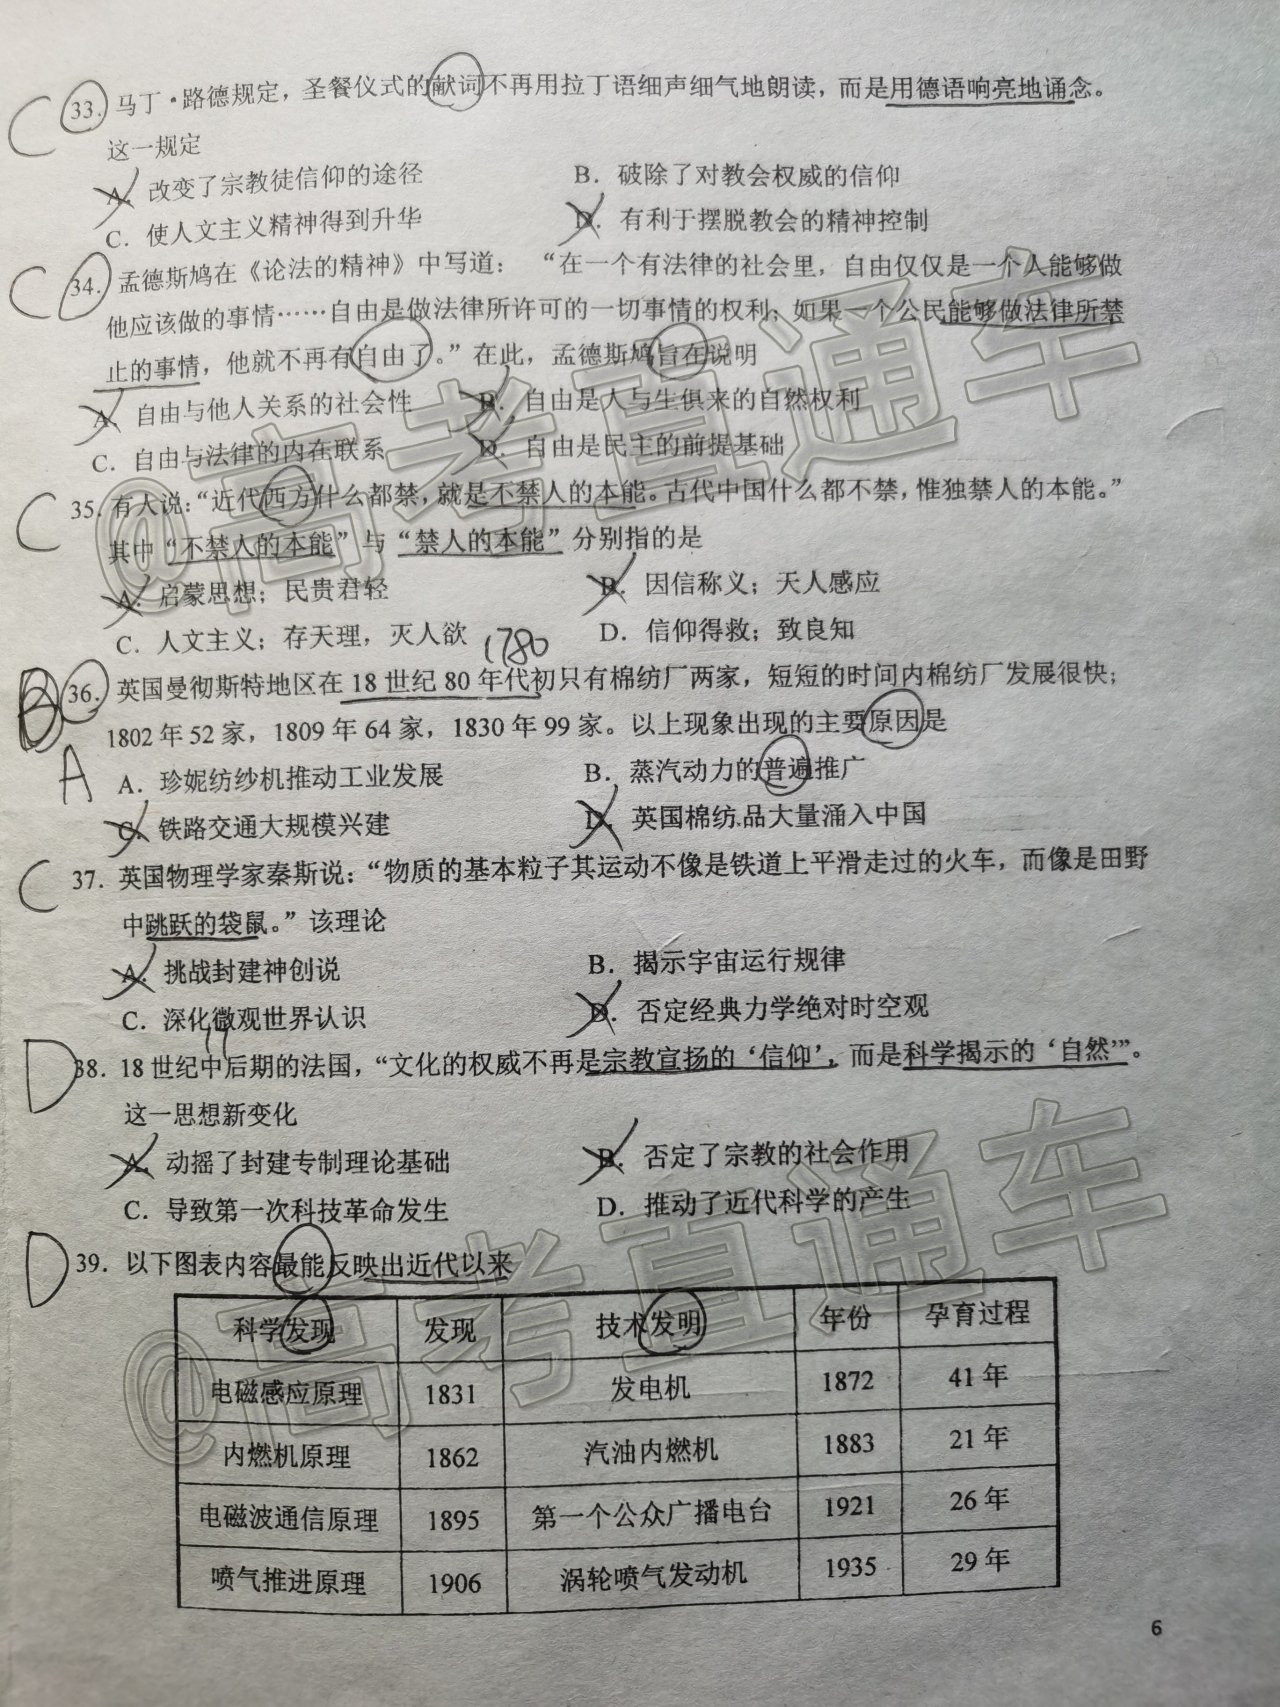 C 33. 马丁·路德规定，圣餐仪式的献词不再用拉丁语细声细气地朗读，而是用德语响亮地诵念。
这一规定
A. 改变了宗教徒信仰的途径 B. 破除了对教会权威的信仰
C. 使人文主义精神得到升华 D. 有利于摆脱教会的精神控制
C 34. 孟德斯鸠在《论法的精神》中写道：“在一个有法律的社会里，自由仅仅是一个人能够做
他应该做的事情……自由是做法律所许可的一切事情的权利；如果一个公民能够做法律所禁
止的事情，他就不再有自由了。”在此，孟德斯鸠旨在说明
A. 自由与他人关系的社会性 B. 自由是人与生俱来的自然权利
C. 自由与法律的内在联系 D. 自由是民主的前提基础
C 35. 有人说：“近代西方什么都禁，就是不禁人的本能。古代中国什么都不禁，惟独禁人的本能。”
其中“不禁人的本能”与“禁人的本能”分别指的是
A. 启蒙思想；民贵君轻 B. 因信称义；天人感应
C. 人文主义；存天理，灭人欲 D. 信仰得救；致良知
1780
B 36. 英国曼彻斯特地区在 18 世纪 80 年代初只有棉纺厂两家，短短的时间内棉纺厂发展很快；
1802 年 52 家，1809 年 64 家，1830 年 99 家。以上现象出现的主要原因是
A
A. 珍妮纺纱机推动工业发展 B. 蒸汽动力的普遍推广
C. 铁路交通大规模兴建 D. 英国棉纺品大量涌入中国
C 37. 英国物理学家秦斯说：“物质的基本粒子其运动不像是铁道上平滑走过的火车，而像是田野
中跳跃的袋鼠。”该理论
A. 挑战封建神创说 B. 揭示宇宙运行规律
C. 深化微观世界认识 D. 否定经典力学绝对时空观
17
D 38. 18 世纪中后期的法国，“文化的权威不再是宗教宣扬的‘信仰’，而是科学揭示的‘自然’”。
这一思想新变化
A. 动摇了封建专制理论基础 B. 否定了宗教的社会作用
C. 导致第一次科技革命发生 D. 推动了近代科学的产生
D 39. 以下图表内容最能反映出近代以来
科学发现 发现 技术发明 年份 孕育过程
电磁感应原理 1831 发电机 1872 41 年
内燃机原理 1862 汽油内燃机 1883 21 年
电磁波通信原理 1895 第一个公众广播电台 1921 26 年
喷气推进原理 1906 涡轮喷气发动机 1935 29 年
6
@高考直通车
@高考直通车